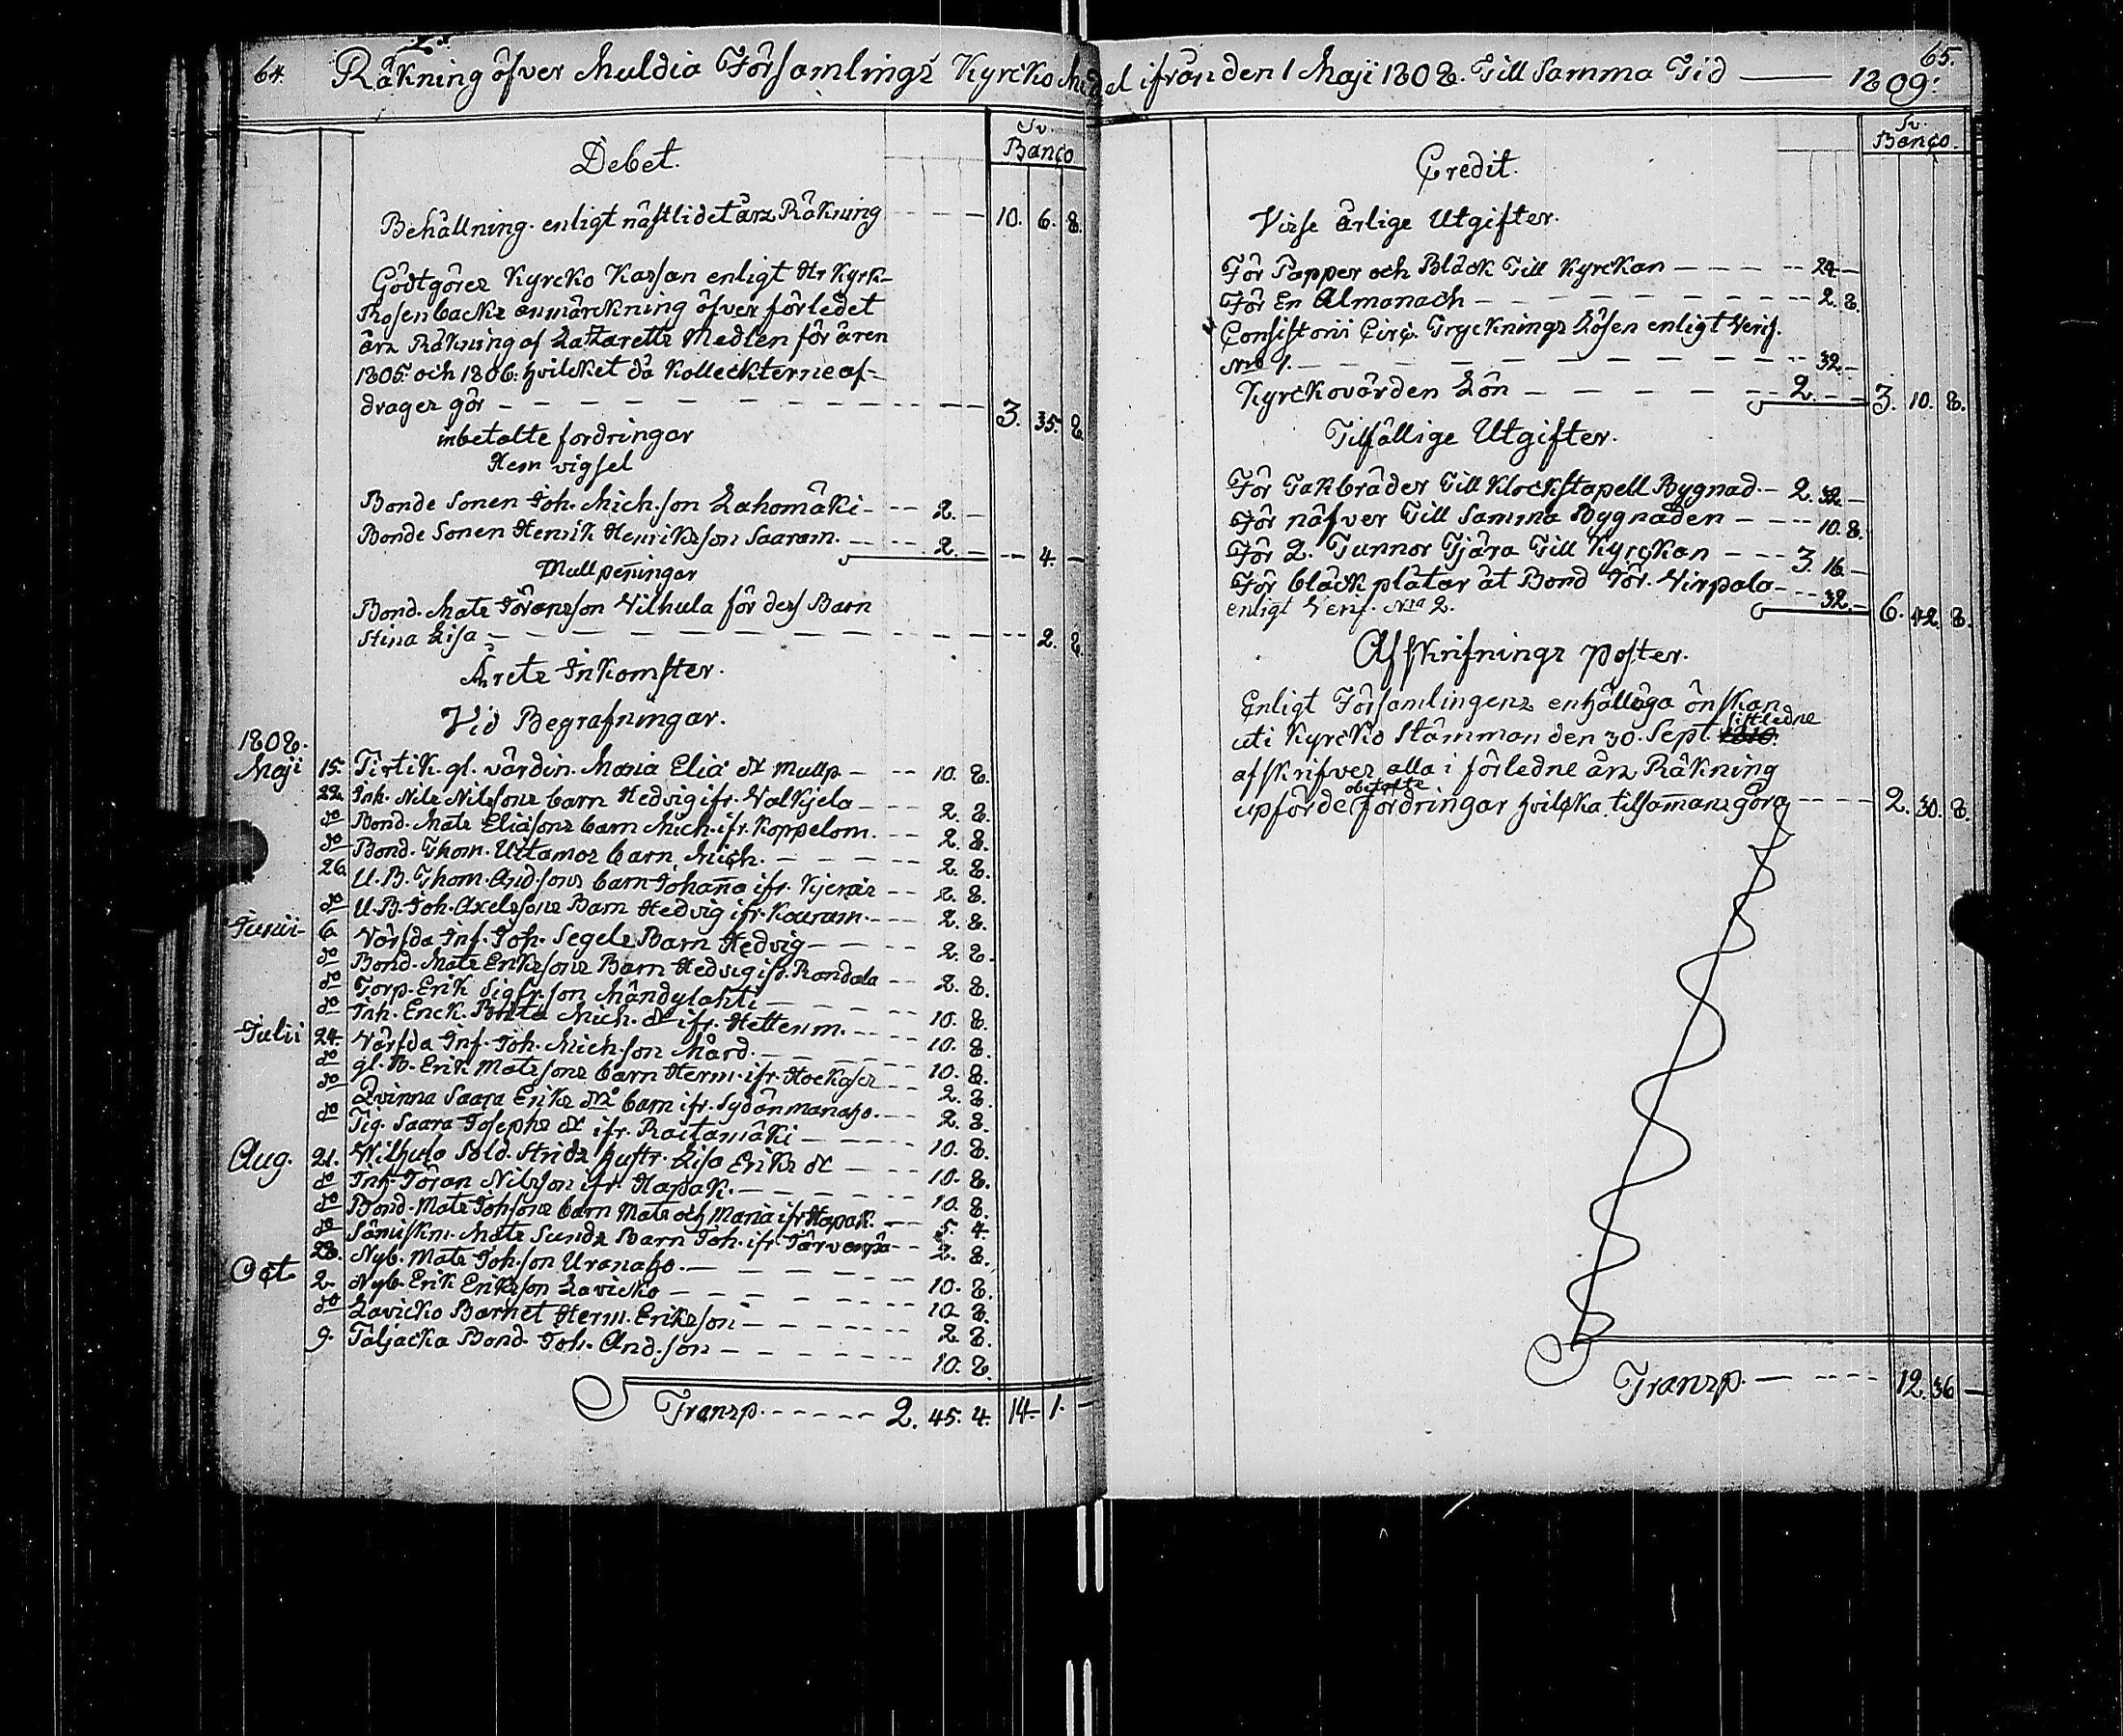 64. Räkning öfver Muldia Församlings Kyrcko Medel ifrån den 1 Maji 1808. Till Samma Tid — 1809: 65.
Sv. Banco
Debet.
Behållning enligt nästlidet års Räkning - - - 10. 6. 8.
Godtgöres Kyrcko Kassan enligt Hr Kyrk-
Rosenbacks anmärckning öfver förledet
års Räkning af Lazaretts Medlen för åren
1805. och 1806: hvilcket då Kolleckterne af-
drages gör - - - 3. 35. 8.
inbetalte fordringar
Hem vigsel
Bonde Sonen Joh. Mich.son Lahomäki - - - 2. -
Bonde Sonen Henrik Henriksson Saaram. - - - 2. - - - 4. -
Mullpeñingar
Bond. Mats Göransson Vilhula för dess Barn
Stina Lisa - - - 2. 8.
Årets Inkomster.
Vid Begrafningar.
1808.
Maji 15. Tirtik. gl. värdin. Maria Eliæ dr mullp - - - 10. 8.
22. Inh. Nils Nilssons barn Hedvig ifr. Valkjela - - - 2. 8.
do Bond. Mats Eliæsons barn Mich. ifr. Koppelom. - - - 2. 8.
do Bond. Thom. Urtamos barn Mich. - - - 2. 8.
26. U.B. Thom. And.sons barn Johaña ifr. - - - 2. 8.
do U.B. Joh. Axelssons Barn Hedvig ifr. - - - 2. 8.
Junii 6. Vörfda Inf. Joh. Segels Barn Hedvig - - - 2. 8.
do Bond. Mats Erikssons Barn Hedvig ifr. Randala - - - 2. 8.
do Torp. Erik Sigfr.son Mändylahti - - - 10. 8.
do Inh. Erick. Mich. dr ifr. Hettenm. - - - 10. 8.
Julii 24. Vörfda Inf. Joh. Mich.son Mård. - - - 10. 8.
do gl. B. Erik Matssons barn Herm. ifr. - - - 2. 8.
do Qvinna Saara Eriks drs barn ifr. Sydänmanaho. - - - 2. 8.
do Tig. Saara Josephs dr ifr. Raitamäki - - - 10. 8.
Aug. 21. Wilhula Sold. Strids hustr. Lisa Eriks dr - - - 10. 8.
do Inh. Göran Nilsson ifr. Hapak. - - - 10. 8.
do Bond. Mats Johsons barn Mats och Maria ifr Hapak. - - - 5. 4.
do Sämiskm. Mats Sunds Barn Joh. ifr. Järvenpä - - - 2. 8.
28. Nyb. Mats Joh.son Uranaho. - - - 10. 8.
Oct. 2. Nyb. Erik Eriksson Lavicko - - - 10. 8.
do Lavicko Barnet Herm. Eriksson - - - 2. 8.
9. Taljacka Bond. Joh. And.son - - - 10. 8.
Transp. - - - 2. 45. 4. 14. 1. -
Sv. Banco.
Credit.
Visse årlige Utgifter.
För Papper och Bläck Till Kyrckan - - - 24 -
För En Almanach - - - 2. 8.
Consistorii Circ. Trycknings Lösen enligt Verif.
No 1. - - - 32. -
Kyrckovärden Lön - - - 2. - - 3. 10. 8.
Tilfällige Utgifter.
För Takbräder Till Klockstapell Bygnad. - 2. 32. -
För näfver Till Samma Bygnaden - - - 10. 8.
För 2. Tunnor Tjära Till Kyrckan - - - 3. 16. -
För bläck plåtar åt Bond Jör. Virpala - - - 32. -
enligt Verif. No 2. 6. 42. 8.
Afskrifnings poster.
Enligt Församlingens enhälliga önskan
uti Kyrcko Stämman den 30. Sept. sistledne
afskrifves alla i förledne års Räkning
upförde obetalte fordringar hvilcka tilsam̄ans göra - - - 2. 30. 8.
Transp. - - - 12. 36 -